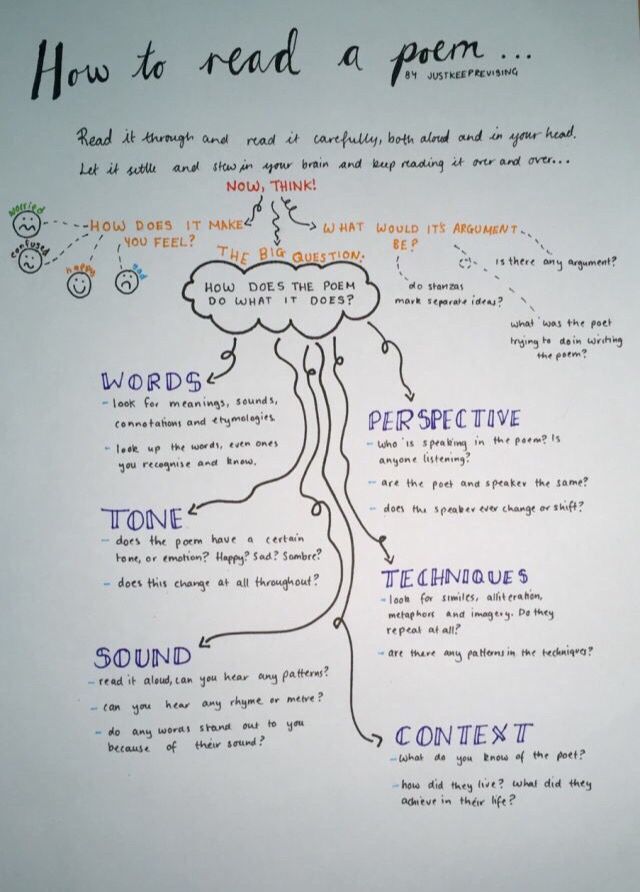 How to read a poem...
BY JUSTKEEPREVISING
Read it through and read it carefully, both aloud and in your head.
Let it settle and stew in your brain and keep reading it over and over...
NOW, THINK!
worried
confused
happy
sad
HOW DOES IT MAKE
YOU FEEL?
WHAT WOULD IT'S ARGUMENT
BE?
is there any argument?
do stanzas
mark separate ideas?
what was the poet
trying to do in writing
the poem?
THE BIG QUESTION:
HOW DOES THE POEM
DO WHAT IT DOES?
WORDS
- look for meanings, sounds,
connotations and etymologies.
- look up the words, even ones
you recognise and know.
PERSPECTIVE
- Who is speaking in the poem? Is
anyone listening?
- are the poet and speaker the same?
- does the speaker ever change or shift?
TONE
- does the poem have a certain
tone, or emotion? Happy? Sad? Sombre?
- does this change at all throughout?
TECHNIQUES
- look for similes, alliteration,
metaphors and imagery. Do they
repeat at all?
- are there any patterns in the techniques?
SOUND
- read it aloud, can you hear any patterns?
- can you hear any rhyme or metre?
- do any words stand out to you
because of their sound?
CONTEXT
- What do you know of the poet?
- how did they live? What did they
achieve in their life?